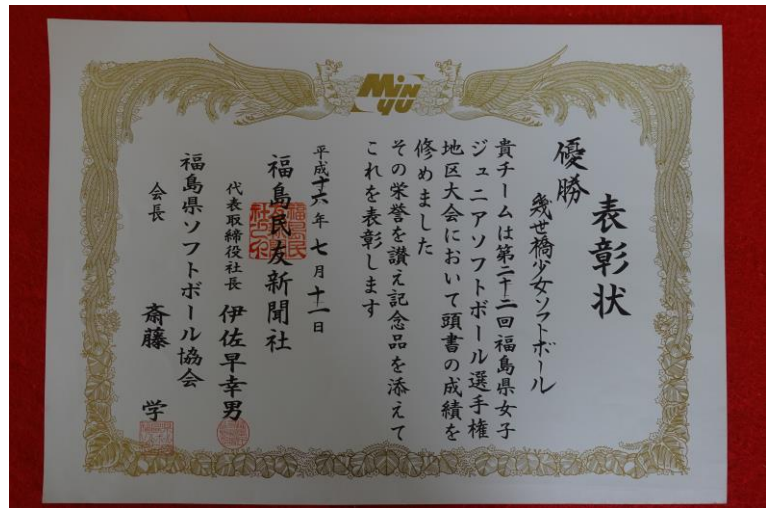 MiNYU
表彰状
優勝
幾世橋少女ソフトボール
貴チームは第二十二回福島県女子
ジュニアソフトボール選手権
地区大会において頭書の成績を
修めました
その栄誉を讃え記念品を添えて
これを表彰します
平成十六年七月十一日
福島民友新聞社
代表取締役社長 伊佐早幸男
福島県ソフトボール協会
会長 斎藤 学